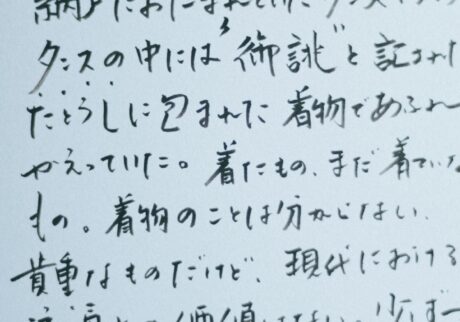 納戸におさまれていた、タンス
タンスの中には"御誂"と記された
たとうしに包まれた着物であふれ
かえっていた。着たもの、まだ着ていな
もの。着物のことは分からない、
貴重なものだけど、現代における
価値 ない、少ば